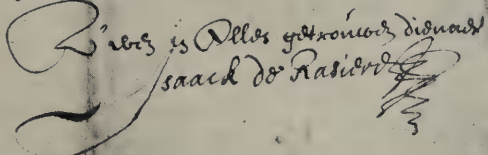 U wes in Alles getrouwen dienaer
Isaack de Rasiere